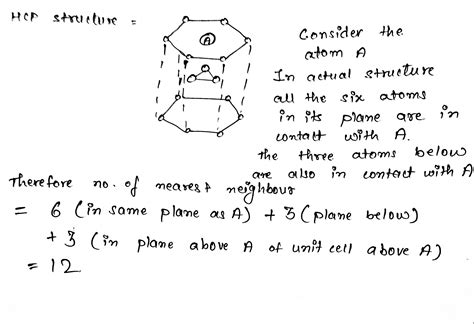 HCP structure =
A
Consider the
atom A
In actual structure
all the six atoms
in its plane are in
contact with A.
the three atoms below
are also in contact with A
Therefore no. of nearest neighbour
= 6 (in same plane as A) + 3 (plane below)
+ 3 (in plane above A of unit cell above A)
= 12